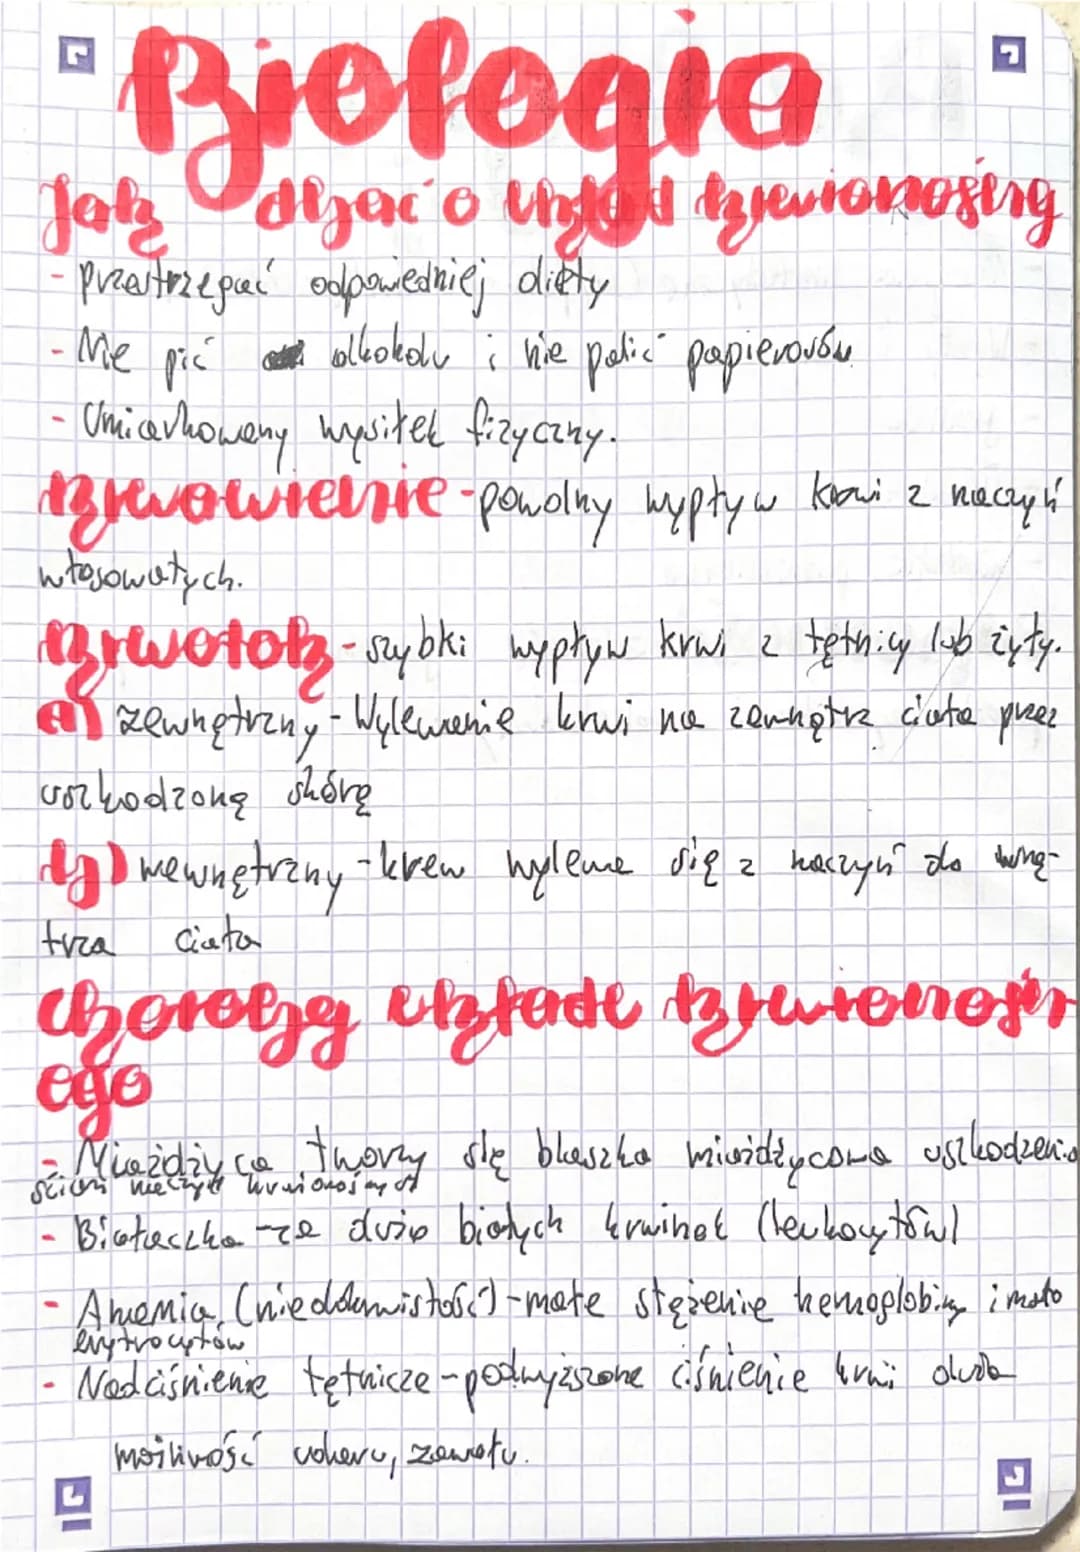 Biologia
Jak dbać o układ krwionośny
- Przestrzegać odpowiedniej diety
- Nie pić alkoholu i nie palić papierosów
- Umiarkowany wysiłek fizyczny.
Krwawienie - powolny wypływ krwi z naczyń
włosowatych.
Krwotok - szybki wypływ krwi z tętnicy lub żyły.
a) zewnętrzny - Wylewanie krwi na zewnątrz ciała przez
uszkodzoną skórę
b) wewnętrzny - krew wylewa się z naczyń do wnę-
trza ciała
Choroby układu krwionośn
ego
- Miażdżyca, tworzy się blaszka miażdżycowa uszkodzenia
ścian naczyń krwionośnych
- Białaczka - za dużo białych krwinek (leukocytów)
- Anemia, (niedokrwistość) - małe stężenie hemoglobiny i mało
erytrocytów
- Nadciśnienie tętnicze - podwyższone ciśnienie krwi duża
możliwość udaru, zawału.